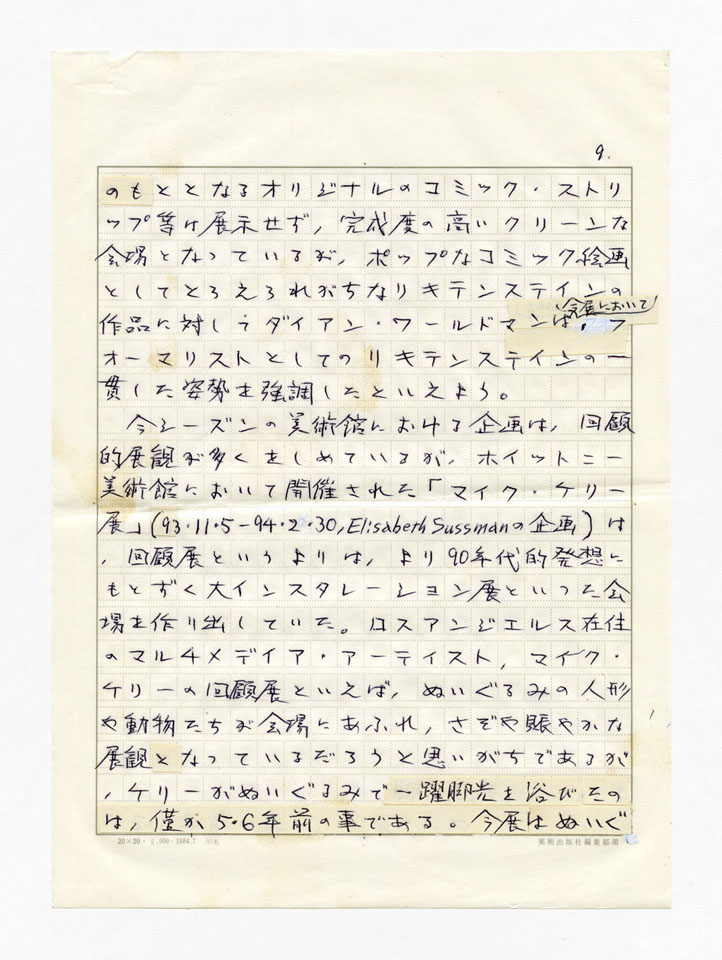 9.
のもととなるオリジナルのコミック・ストリ
ップ等は展示せず，完成度の高いクリーンな
会場となっているが，ポップなコミック絵画
としてとらえられがちなリキテンステインの
(今展において)
作品に対してダイアン・ワールドマンは，フ
ォーマリストとしてのリキテンステインの一
貫した姿勢を強調したといえよう。
今シーズンの美術館における企画は，回顧
的展観が多くをしめているが，ホイットニー
美術館において開催された「マイク・ケリー
展」(93・11・5－94・2・30, Elisabeth Sussmanの企画)は
，回顧展というよりは，より90年代的発想に
もとずく大インスタレーション展といった会
場を作り出していた。ロスアンジェルス在住
のマルチメディア・アーティスト，マイク・
ケリーの回顧展といえば，ぬいぐるみの人形
や動物たちが会場にあふれ，さぞや賑やかな
展観となっているだろうと思いがちであるが
，ケリーがぬいぐるみで一躍脚光を浴びたの
は，僅か5・6年前の事である。今展はぬいぐ
20×20・5,000・1984.7
美術出版社編集部用